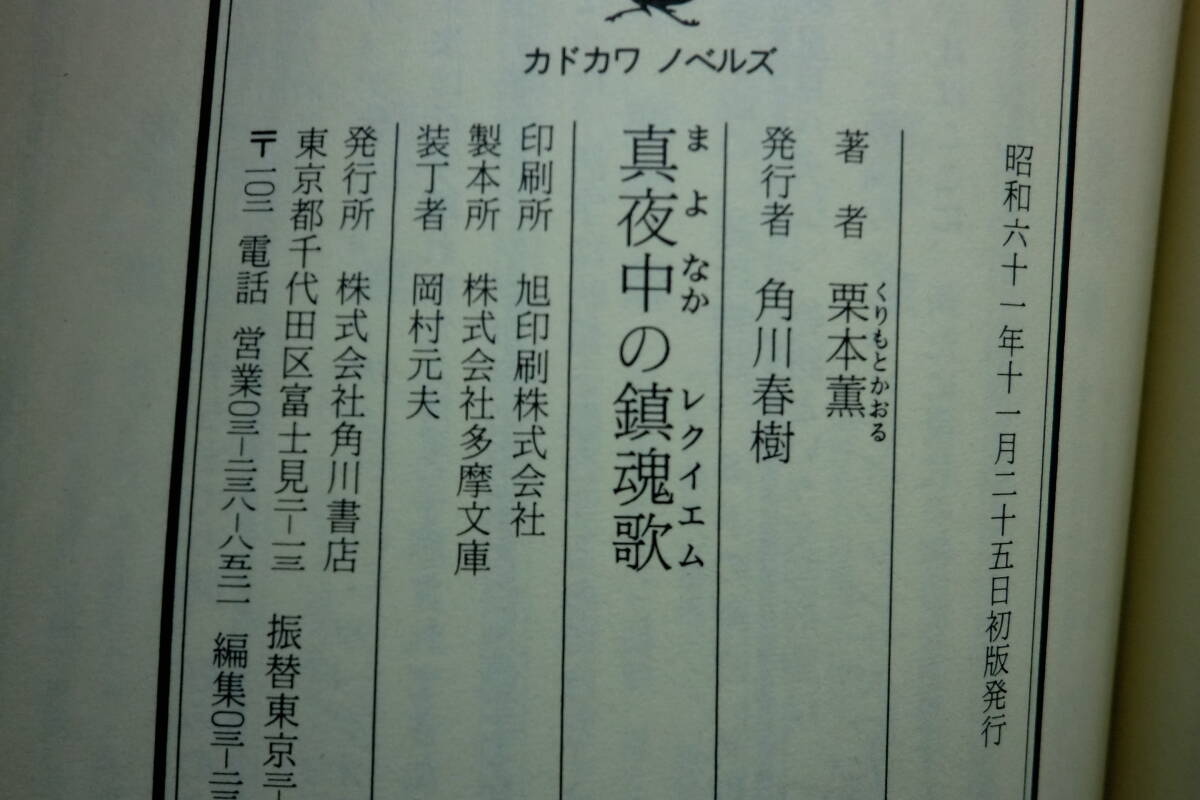 カドカワ ノベルズ
昭和六十一年十一月二十五日初版発行
著者 栗本薫
くりもとかおる
発行者 角川春樹
まよなか レクイエム
真夜中の鎮魂歌
印刷所 旭印刷株式会社
製本所 株式会社多摩文庫
装丁者 岡村元夫
発行所 株式会社角川書店
東京都千代田区富士見二−一三 振替東京三−
〒一〇二 電話 営業〇三−二三八−八五二一 編集〇三−二三